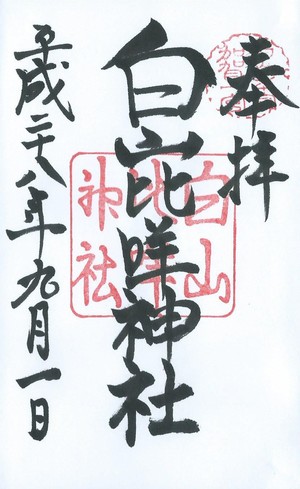 奉拝
白山比咩神社
平成二十八年九月一日
白山
比咩
神社